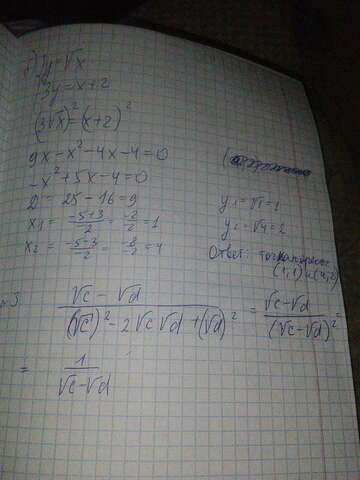 y=√x
3y=x+2
(3√x)²=(x+2)²
9x-x²-4x-4=0
-x²+5x-4=0
D = 25-16=9
x₁ = (-5+3)/-2 = -2/-2 = 1
x₂ = (-5-3)/-2 = -8/-2 = 4
y₁ = √1=1
y₂ = √4=2
Ответ: точки
(1;1) и (4;2)
(√c - √d)/((√c)² - 2√c√d + (√d)²) = (√c-√d)/(√c-√d)² =
= 1/(√c-√d)